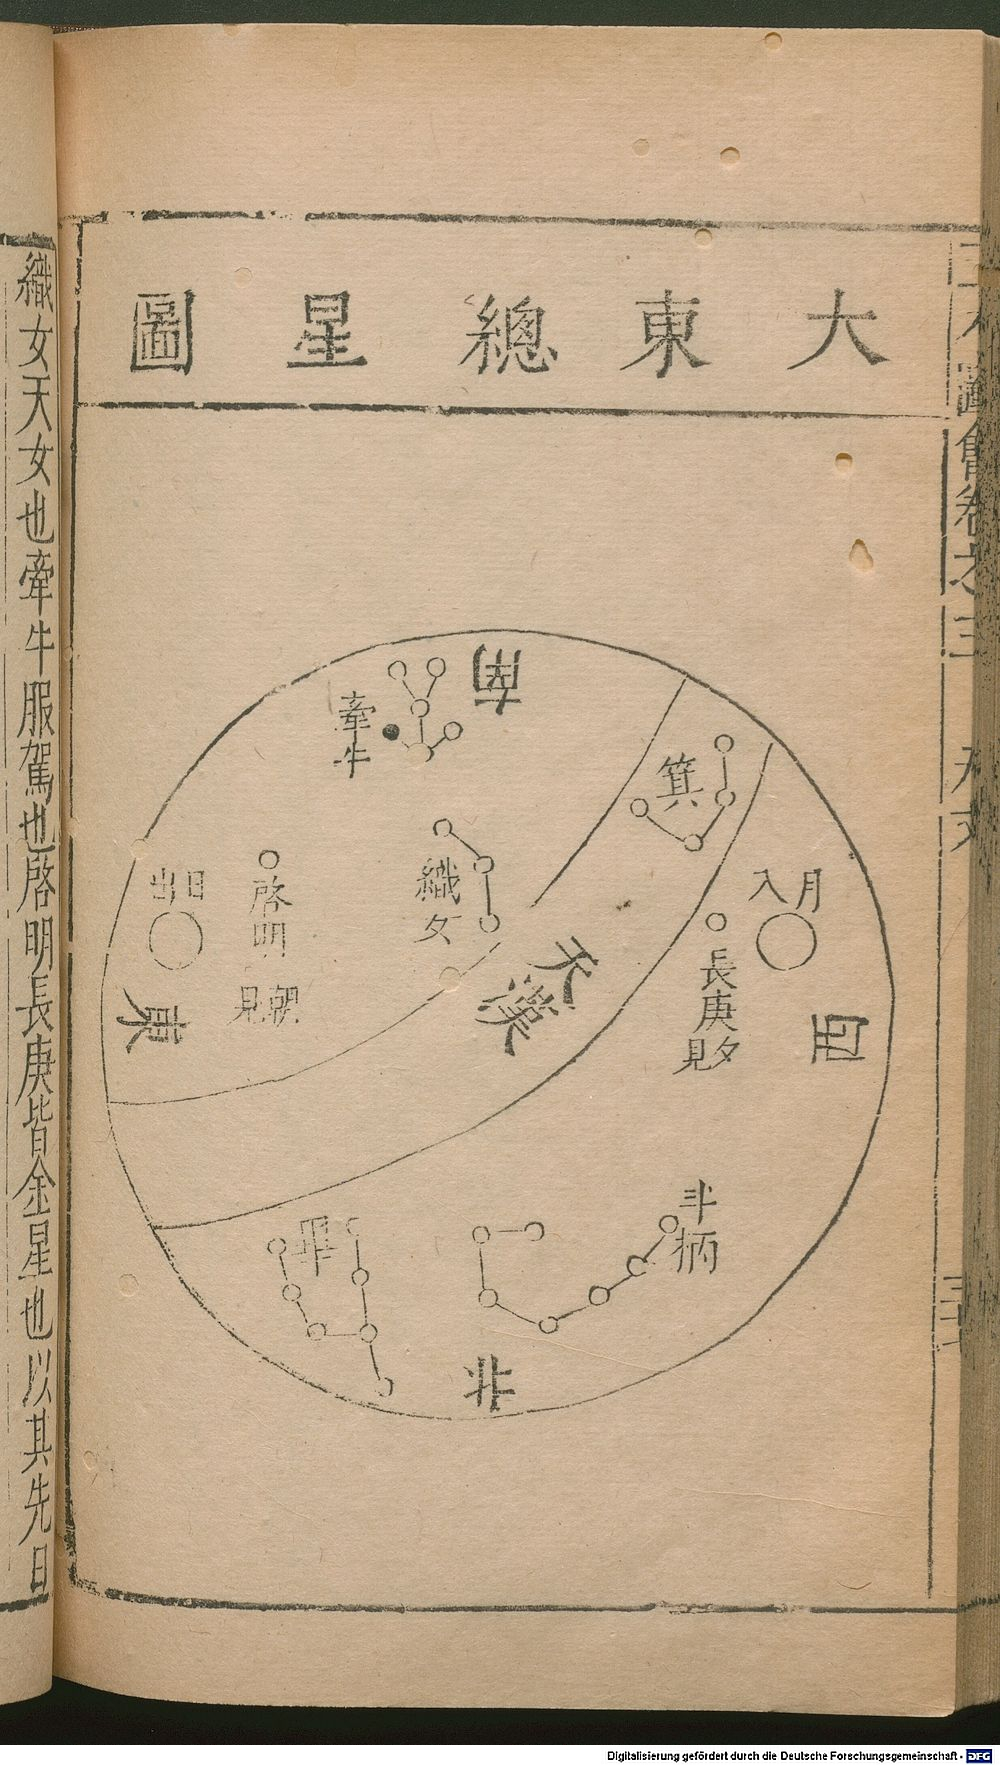 大東總星圖
南
牽牛
箕
織女
日出
啓明
朝見
東
天漢
月入
長庚
夕見
西
斗柄
畢
北
三才圖會卷之三
天文
織女天女也牽牛服駕也啓明長庚皆金星也以其先日
Digitalisierung gefördert durch die Deutsche Forschungsgemeinschaft - DFG